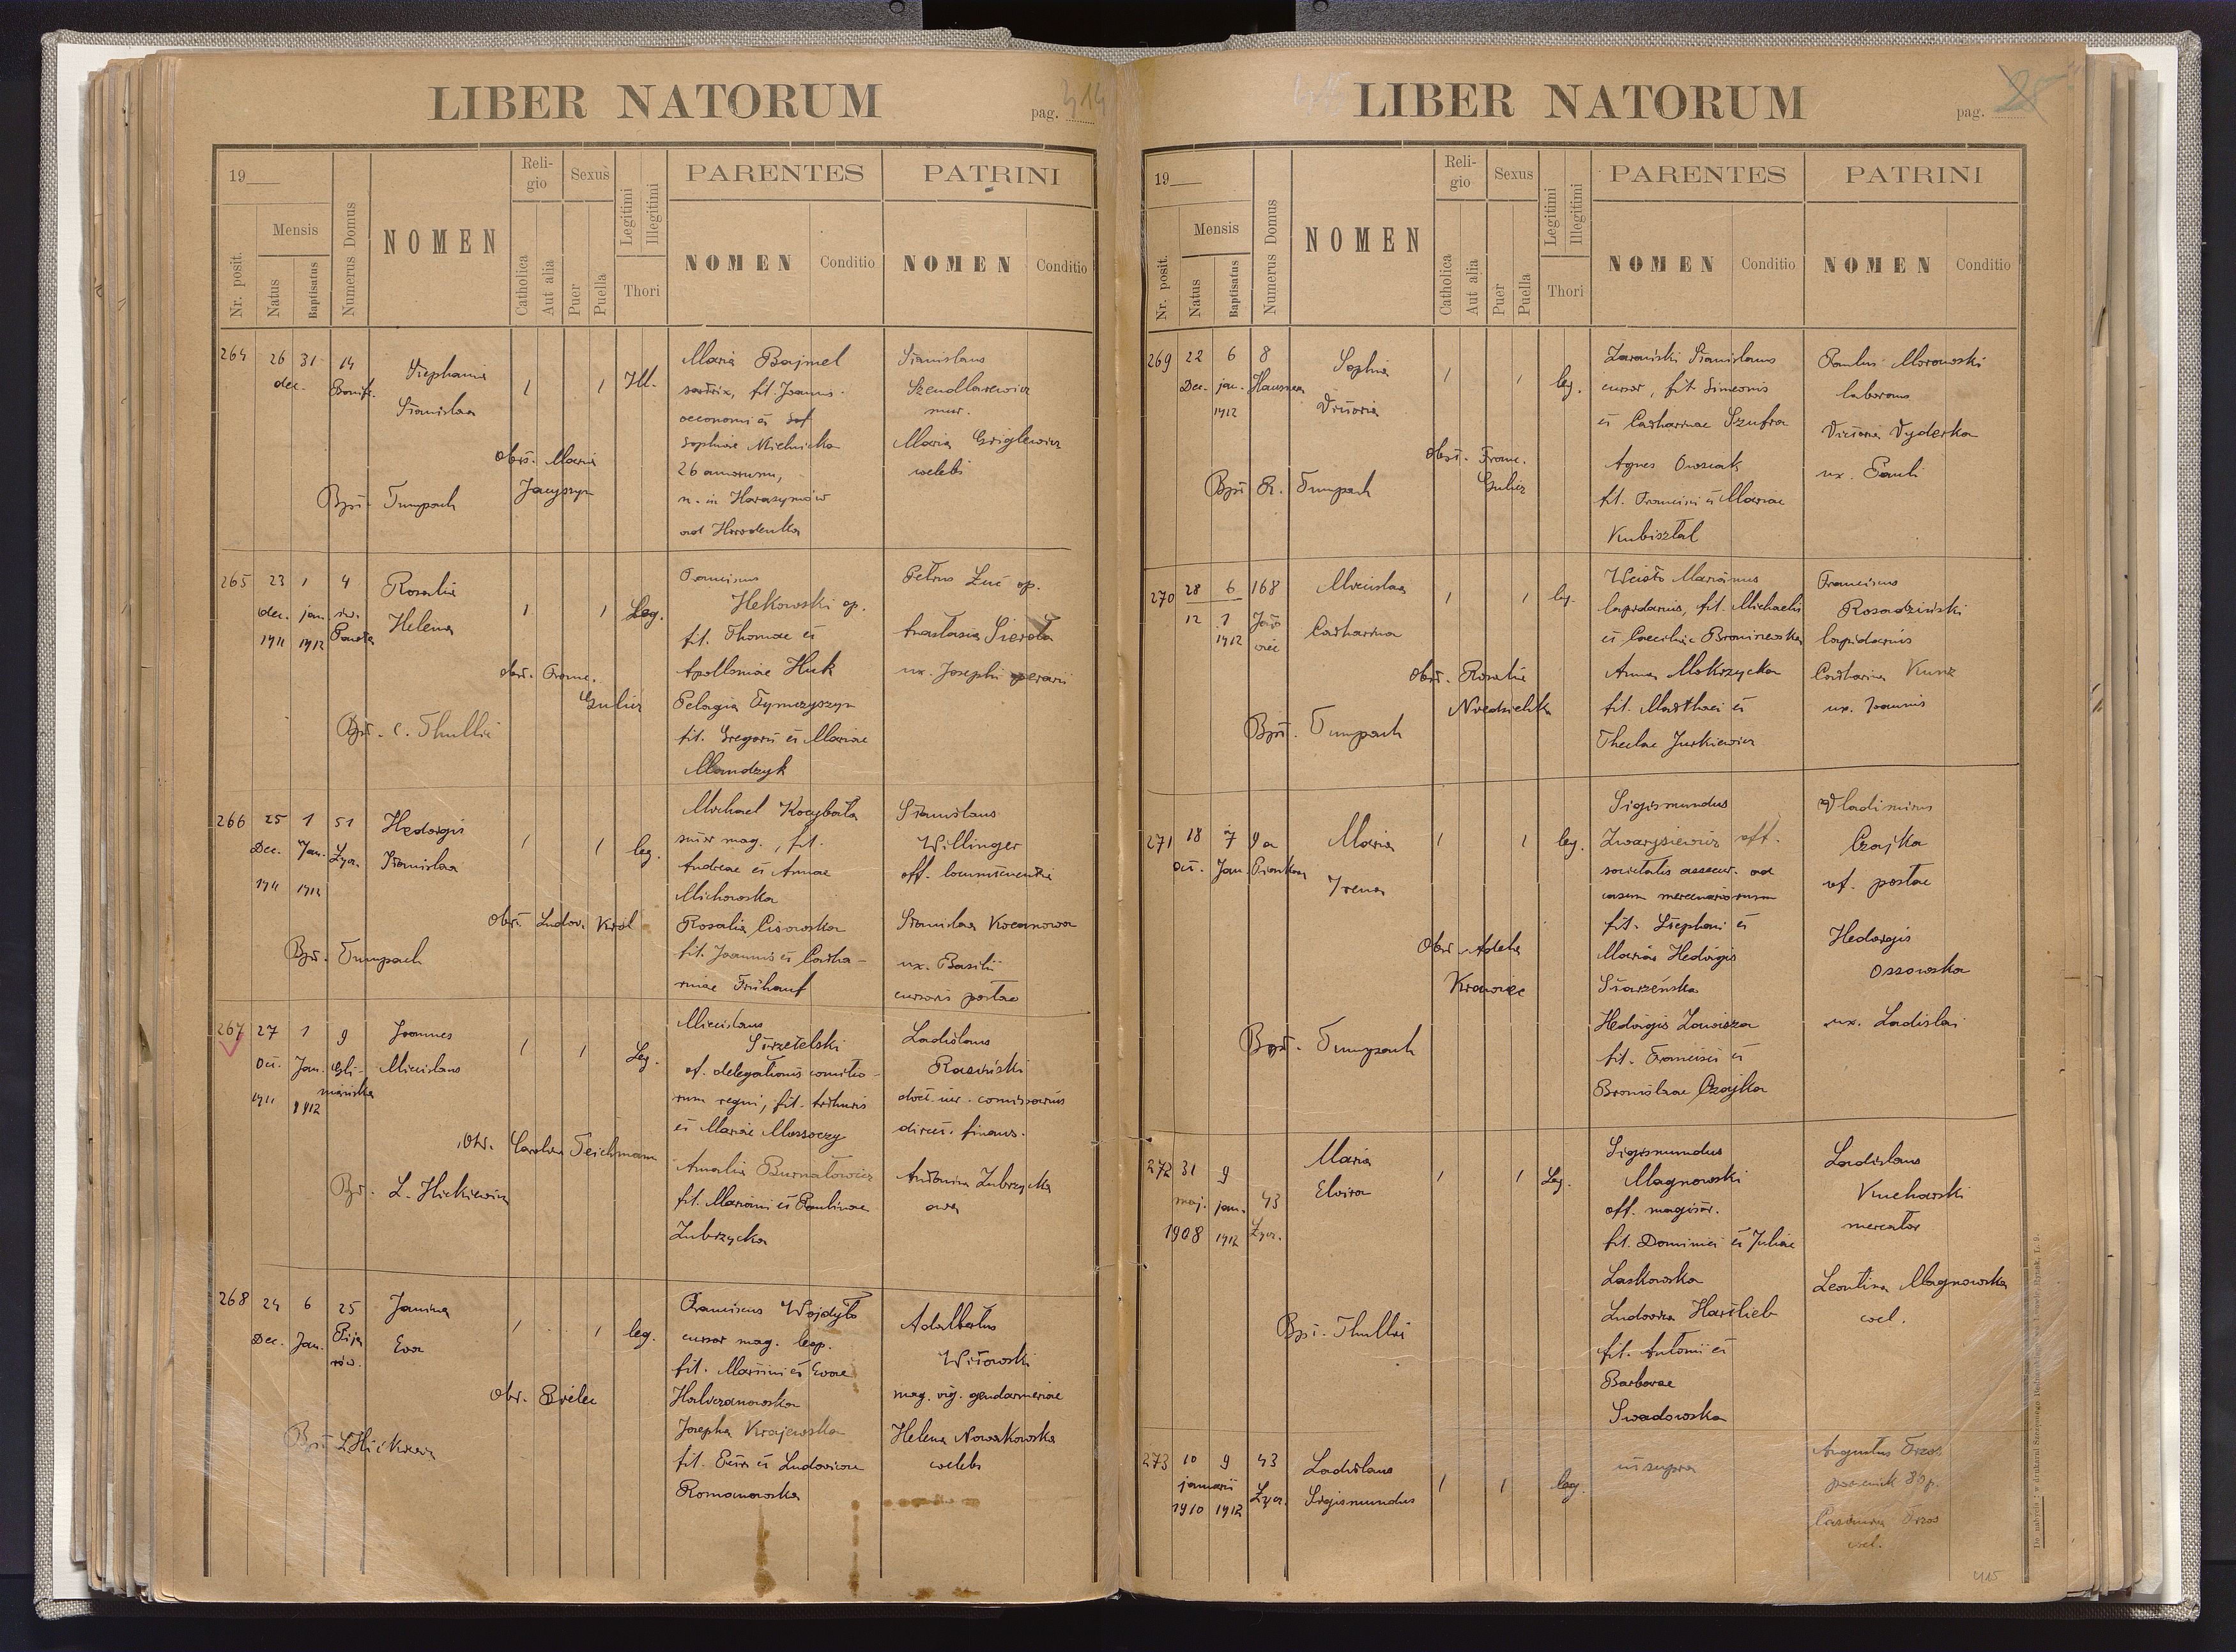 LIBER NATORUM
pag. 314
19
Nr. posit.
Mensis
Natus
Baptisatus
Numerus Domus
NOMEN
Religio
Catholica
Aut alia
Sexus
Puer
Puella
Legitimi
Illegitimi
Thori
PARENTES
NOMEN
Conditio
PATRINI
NOMEN
Conditio
264
26 31 14
dec. Bonifr.
Stephania
Stanislaa
1 1 Ill.
Obst. Maria
Jacyszyn
Bpt. Tumpach
Maria Bajmel
sartrix, fil. Joannis
oeconomi et
Sophiae Mielnicka
26 annorum,
n. in Harasymów
ad Horodenka
Stanislaus
Szendlarewicz
mur.
Maria Griglewicz
celebs
265
23 1 4
dec. jan. św.
1911 1912
Rosalia
Helena
1 1 Leg.
Obst. Franc.
Gulicz
Bpt. C. Thullie
Franciscus
Hekowski op.
fil. Thomae et
Apolloniae Huk
Pelagia Tymczyszyn
fil. Gregorii et Mariae
Mandzyk
Petrus Łuć op.
Anastasia Sierota
ux. Josephi operarii
266
25 1 51
Dec. Jan. Łycz.
1911 1912
Hedvigis
Stanislaa
1 1 leg.
Obst. Ludov. Król
Bpt. Tumpach
Michael Kocybała
sutor mag., fil.
Andreae et Annae
Michowska
Rosalia Cisowska
fil. Joannis et Catha-
rinae Frühauf
Stanislaus
Willinger
off. locumtenentiae
Stanislaa Kocanowa
ux. Basilii
cursoris postae
267
27 1 9
Oct. Jan. Gli-
niańska
1911 1912
Joannes
Miecislaus
1 1 Leg.
Obst. Carolina Teichmann
Bpt. L. Hickiewicz
Miecislaus
Strzetelski
of. delegationis comitio-
rum regni, fil. Arthuris
et Mariae Mossoczy
Amalia Burnatowicz
fil. Mariani et Paulinae
Zubrzycka
Ladislaus
Rasiński
doct. iur. comissarius
direct. finans.
Antonina Zubrzycka
268
24 6 25
Dec. Jan. Pija
rów.
Janina
Eva
1 1 leg.
Obst. Brilec
Bpt. L Hickiewicz
Franciscus Wojdyło
cursor mag. leop.
fil. Martini et Evae
Halczanowska
Josepha Krajewska
fil. Petri et Ludovicae
Romanowska
Adalbertus
Witowski
mag. vig. gendarmeriae
Helena Nowakowska
celebs
LIBER NATORUM
pag.
19
Nr. posit.
Mensis
Natus
Baptisatus
Numerus Domus
NOMEN
Religio
Catholica
Aut alia
Sexus
Puer
Puella
Legitimi
Illegitimi
Thori
PARENTES
NOMEN
Conditio
PATRINI
NOMEN
Conditio
269
22 6 8
Dec. jan. Hausnera
1912
Sophia
Victoria
1 1 leg.
Obst. Franc.
Gulicz
Bpt. R. Tumpach
Zarański Stanislaus
cursor, fil. Simeonis
et Catharinae Szufra
Agnes Owsiak
fil. Francisci et Mariae
Kubisztal
Paulus Morowski
laborans
Victoria Vyderka
ux. Pauli
270
28 6 168
12 1 Jano
1912 wsc
Miecislaa
Catharina
1 1 leg.
Obst. Rosalia
Niedzielska
Bpt. Tumpach
Wcisło Marianus
lapidarius, fil. Michaelis
et Caeciliae Broniszewska
Anna Mokrzycka
fil. Matthaei et
Theclae Jurkiewicz
Franciscus
Rosadziński
lapidarius
Catharina Kunz
ux. Joannis
271
18 7 9a
Oct. Jan. Piaskowa
Maria
Irena
1 1 leg.
Obst. Adela
Krawiec
Bpt. Tumpach
Sigismundus
Zwarysiewicz off.
societatis assecur. ad
casum mercenariorum
fil. Stephani et
Mariae Hedvigis
Starzeńska
Hedvigis Zawisza
fil. Francisci et
Bronislaae Czajka
Vladimirus
Czajka
of. postae
Hedvigis
Ossowska
ux. Ladislai
272
31 9
maj. jan. 43
1908 1912 Łycz.
Maria
Elvira
1 1 Leg.
Bpt. Thullie
Sigismundus
Magnowski
off. magistr.
fil. Dominici et Juliae
Laskowska
Ludovica Hartlieb
fil. Antonii et
Barbarae
Swadowska
Ladislaus
Kucharski
mercator
Leontina Magnowska
cel.
273
10 9 43
januarii Łycz.
1910 1912
Ladislaus
Sigismundus
1 1 leg.
ut supra
Augustus Trzos
porucnik 80 p.
Casimira Trzos
cel.
415